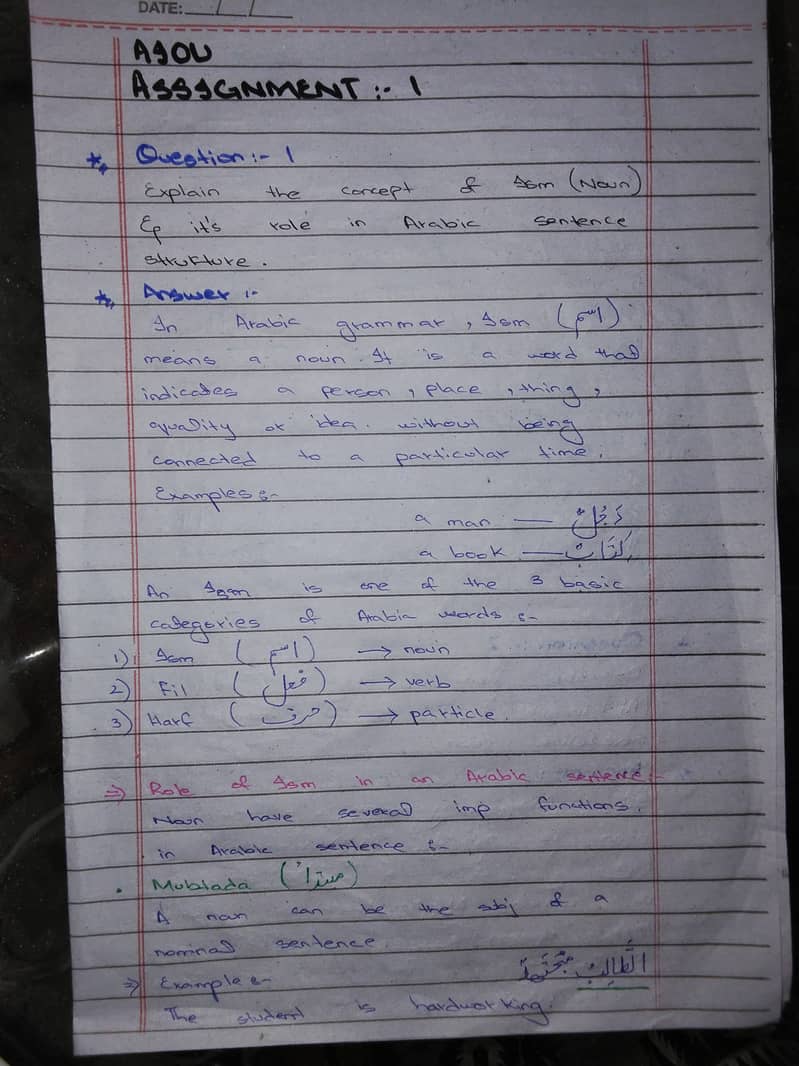 DATE: __/__/__
AIOU
ASSIGNMENT :- 1
Question :- 1
Explain the concept of Ism (Noun)
& it's role in Arabic sentence
strukture.
Answer :-
In Arabic grammar, Ism (اسم)
means a noun. It is a word that
indicates a person, place, thing,
quality or idea. without being
connected to a particular time.
Examples :-
a man — رَجُلٌ
a book — كِتَابٌ
An Ism is one of the 3 basic
categories of Arabic words :-
1) Ism (اسم) → noun
2) Fil (فعل) → verb
3) Harf (حرف) → particle.
⇒ Role of Ism in an Arabic sentence :-
Noun have several imp functions.
in Arabic sentence :-
• Mubtada (مبتدأ)
A noun can be the subj of a
nominal sentence.
⇒ Example :- الطَّالِبُ
The student is hardworking.